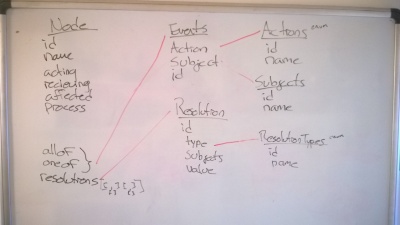 Node
id
name
acting
recieving
affected
process
allof
oneof
resolutions
Events
Action
Subject
id
Resolution
id
type
subjects
value
Actions enum
id
name
Subjects
id
name
ResolutionTypes enum
id
name